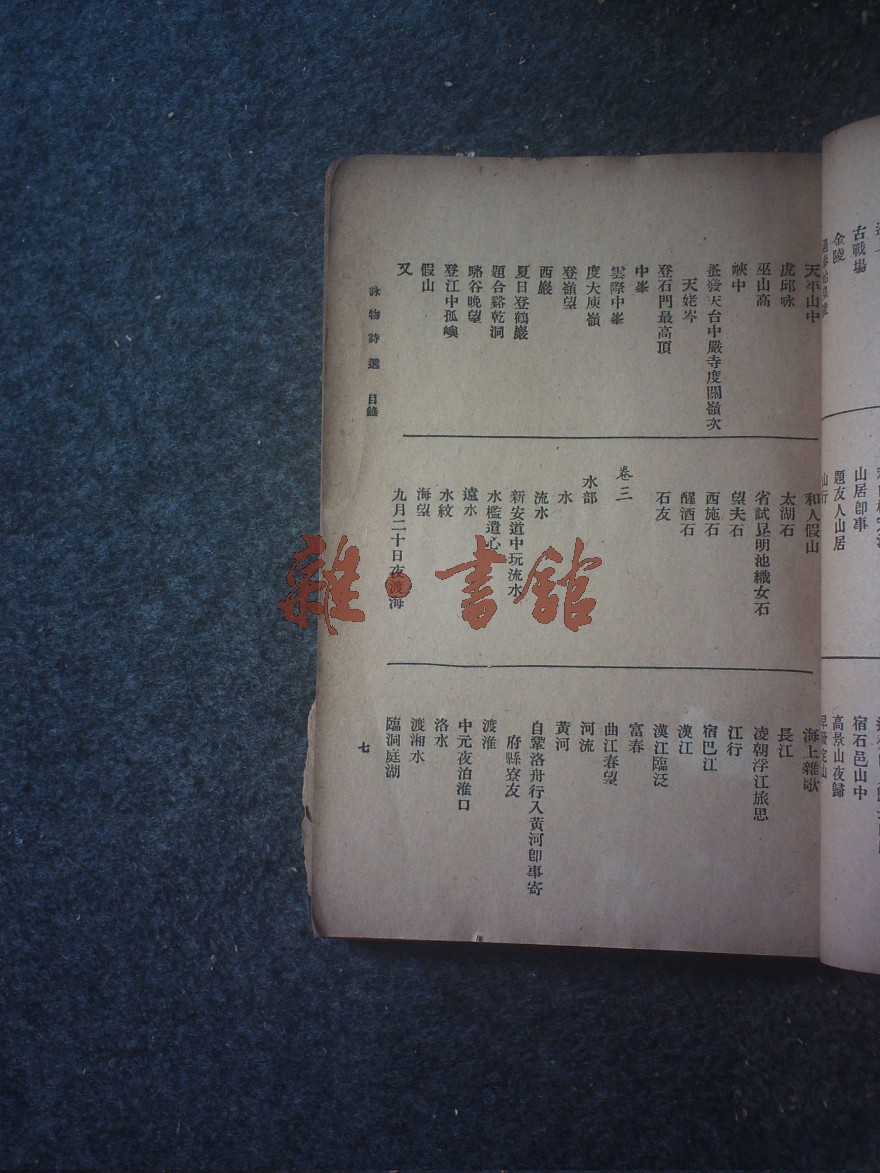 古戰場
金陵
山居卽事
題友人山居
山行
宿石邑山中
高景山夜歸
天平山中
虎邱咏
巫山高
峽中
蚤發天台中嚴寺度關嶺次
天姥岑
登石門最高頂
中峯
雲際中峯
度大庾嶺
登嶺望
西巖
夏日登鶴巖
題合谿乾洞
駱谷晚望
登江中孤嶼
假山
又
和人假山
太湖石
省試昆明池織女石
望夫石
西施石
醒酒石
石友
卷三
水部
水
流水
新安道中玩流水
水檻遣心
遠水
水紋
海望
九月二十日夜渡海
海上雜歌
長江
凌朝浮江旅思
江行
宿巴江
漢江
漢江臨泛
富春
曲江春望
河流
黃河
自鞏洛舟行入黃河卽事寄
府縣寮友
渡淮
中元夜泊淮口
洛水
渡湘水
臨洞庭湖
詠物詩選 目錄
七
雜·書館